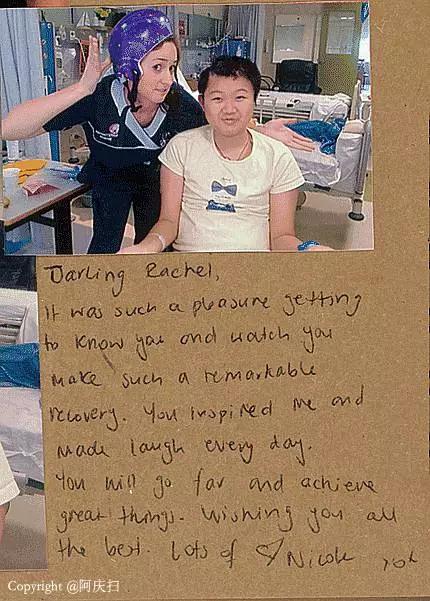 Darling Rachel,
it was such a pleasure getting
to know you and watch you
make such a remarkable
recovery. You inspired me and
made laugh every day.
You will go far and achieve
great things. Wishing you all
the best. Lots of ♡ Nicole
Copyright @阿庆扫